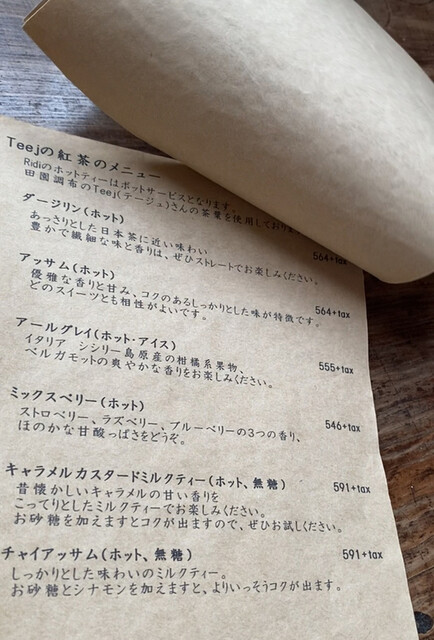 Teejの紅茶のメニュー
Ridiのホットティーはポットサービスとなります。
田園調布のTeej(テージュ)さんの茶葉を使用しておりま
ダージリン(ホット)
564+tax
あっさりとした日本茶に近い味わい
豊かで繊細な味と香りは、ぜひストレートでお楽しみください。
アッサム(ホット)
564+tax
優雅な香りと甘み、コクのあるしっかりとした味が特徴です。
どのスイーツとも相性がよいです。
アールグレイ(ホット・アイス)
555+tax
イタリア シシリー島原産の柑橘系果物、
ベルガモットの爽やかな香りをお楽しみください。
ミックスベリー(ホット)
546+tax
ストロベリー、ラズベリー、ブルーベリーの3つの香り、
ほのかな甘酸っぱさをどうぞ。
キャラメルカスタードミルクティー(ホット、無糖)
591+tax
昔懐かしいキャラメルの甘い香りを
こってりとしたミルクティーでお楽しみください。
お砂糖を加えますとコクが出ますので、ぜひお試しください。
チャイアッサム(ホット、無糖)
591+tax
しっかりとした味わいのミルクティー。
お砂糖とシナモンを加えますと、よりいっそうコクが出ます。